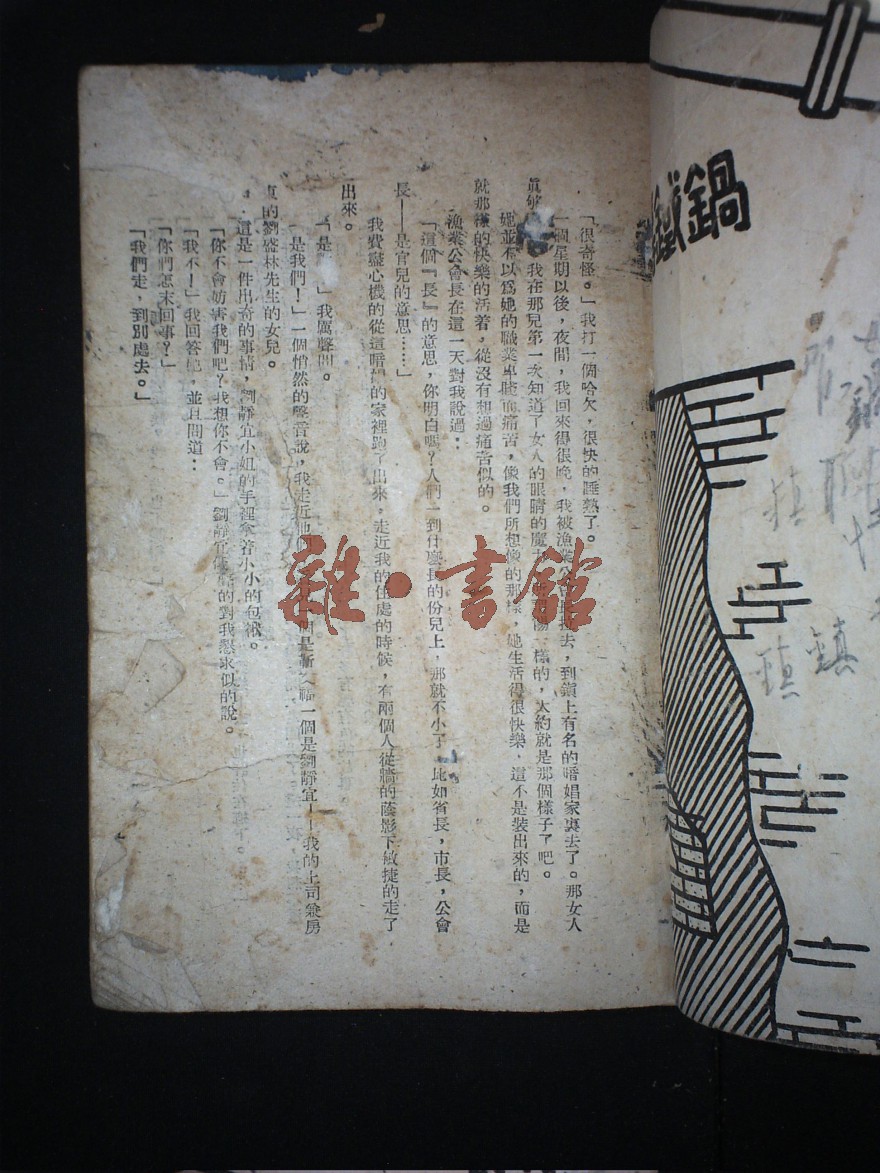 鐵鍋
「很奇怪。」我打一個哈欠，很快的睡熟了。
一個星期以後，夜間，我回來得很晚，我被漁業公會去，到鎭上有名的暗娼家裏去了。那女人
眞够我在那兒第一次知道了女人的眼睛的魔一樣的，大約就是那個樣子了吧。
她並不以爲她的職業卑賤而痛苦，像我們所想像的那樣，她生活得很快樂，這不是裝出來的，而是
就那樣的快樂的活着，從沒有想過痛苦似的。
漁業公會長在這一天對我說過：
「這個『長』的意思，你明白嗎？人們一到什麼長的份兒上，那就不小了，比如省長，市長，公會
長——是官兒的意思……」
我費盡心機的從這暗娼的家裡跑了出來，走近我的住處的時候，有兩個人從牆的蔭影下敏捷的走了
出來。
「是」我厲聲問。
「是我們！」一個悄然的聲音說，我走近他一個是一個是劉靜宜——我的上司兼房
東的劉盛林先生的女兒。
這是一件出奇的事情，劉靜宜小姐的手裡拿着小小的包袱。
「你不會妨害我們吧？我想你不會。」劉靜宜的對我懇求似的說。
「我不！」我回答她，並且問道：
「你們怎末回事？」
「我們走，到別處去。」
雜·書館
鎮